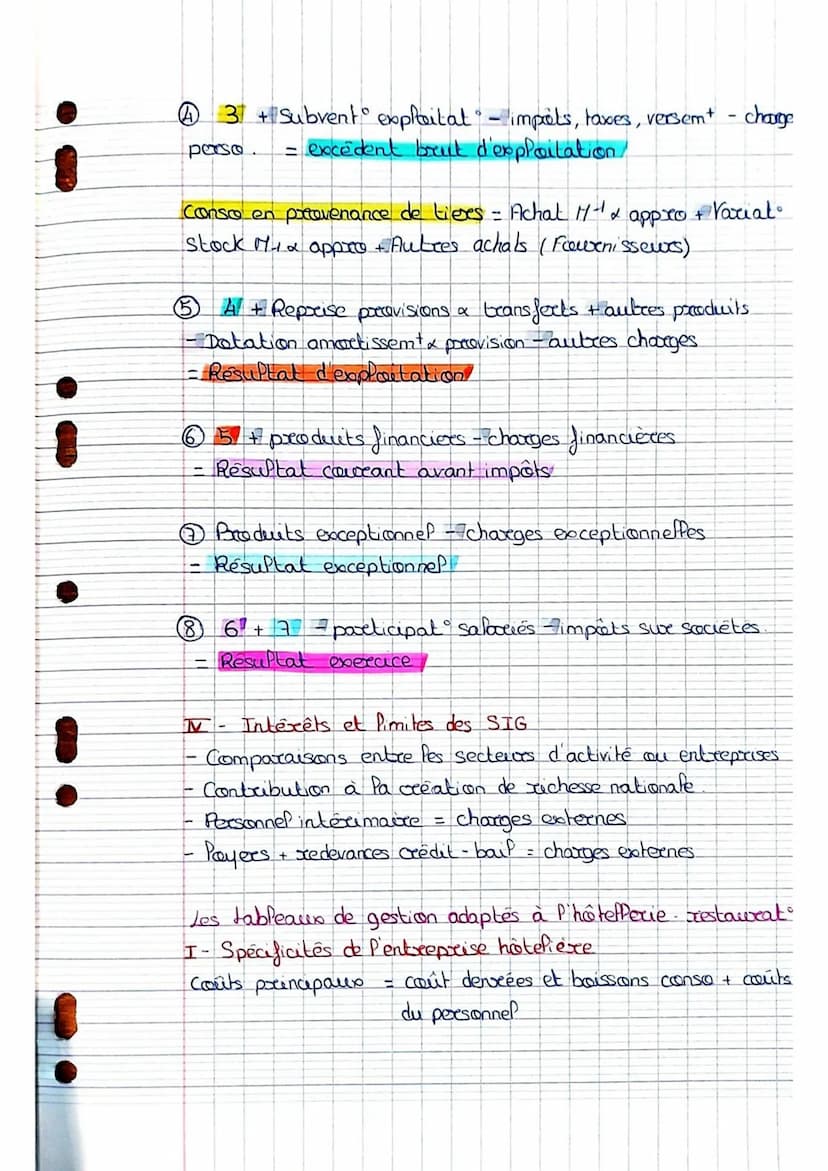 ④ 3 + Subvent° exploitat° - impôts, taxes, versemt - charge
perso. = excédent brut d'exploitation
Conso en provenance de tiers = Achat M-1 & appro + Variat°
Stock M-1 & appro + Autres achats (Fournisseurs)
⑤ 4 + Reprise provisions & transferts + autres produits
- Dotation amortissemt & provision - autres charges
= Résultat d'exploitation
⑥ 5 + produits financiers - charges financières
= Résultat courant avant impôts
⑦ Produits exceptionnel - charges exceptionnelles
= Résultat exceptionnel
⑧ 6 + 7 - participat° salariés - impôts sur sociétés.
= Résultat exercice
IV - Intérêts et limites des SIG
- Comparaisons entre les secteurs d'activité ou entreprises
- Contribution à la création de richesse nationale.
- Personnel intérimaire = charges externes
- Loyers + redevances crédit-bail = charges externes
Les tableaux de gestion adaptés à l'hôtellerie-restaurat°
I - Spécificités de l'entreprise hôtelière
Coûts principaux = coût denrées et boissons conso + coûts
du personnel